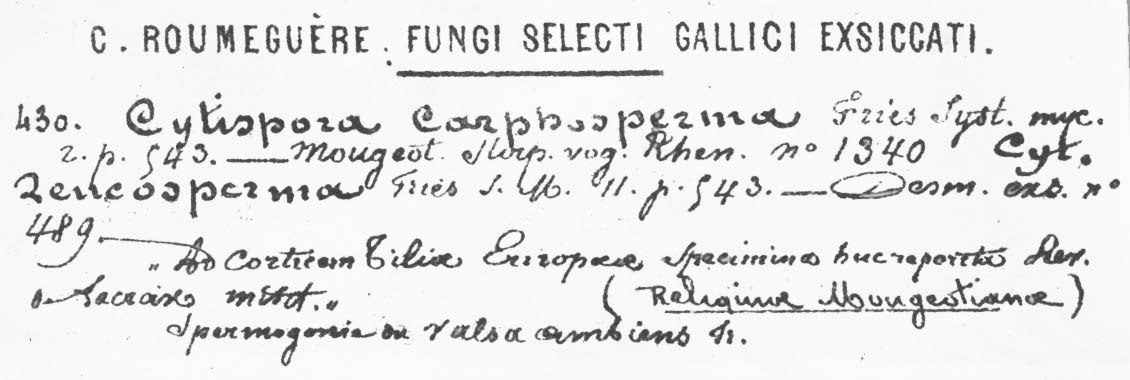 C. ROUMEGUÈRE. FUNGI SELECTI GALLICI EXSICCATI.
430. Cytispora Carphosperma Fries Syst. myc.
2. p. 543. — Mougeot. Stirp. vog. Rhen. n° 1340 Cyt.
Leucosperma Fries S. M. 11. p. 543. — Desm. exs. n°
489. —
„ Ad Corticem Tiliæ Europaeæ Specimina huc
Lacroix „ (Reliquiæ Mougeotianæ)
Spermogonie du Valsa ambiens fr.